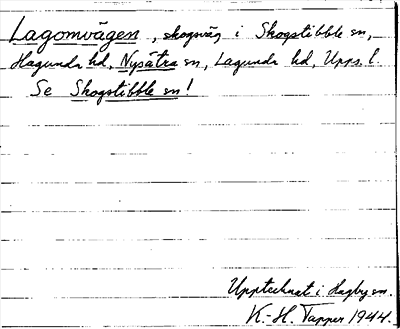 Lagomvägen, skogsväg i Skogstibble sn,
Hagunda hd, Nysätra sn, Lagunda hd, Upps. l.
Se Skogstibble sn!
Upptecknat i Hagby sn.
K.-H. Tapper 1944.